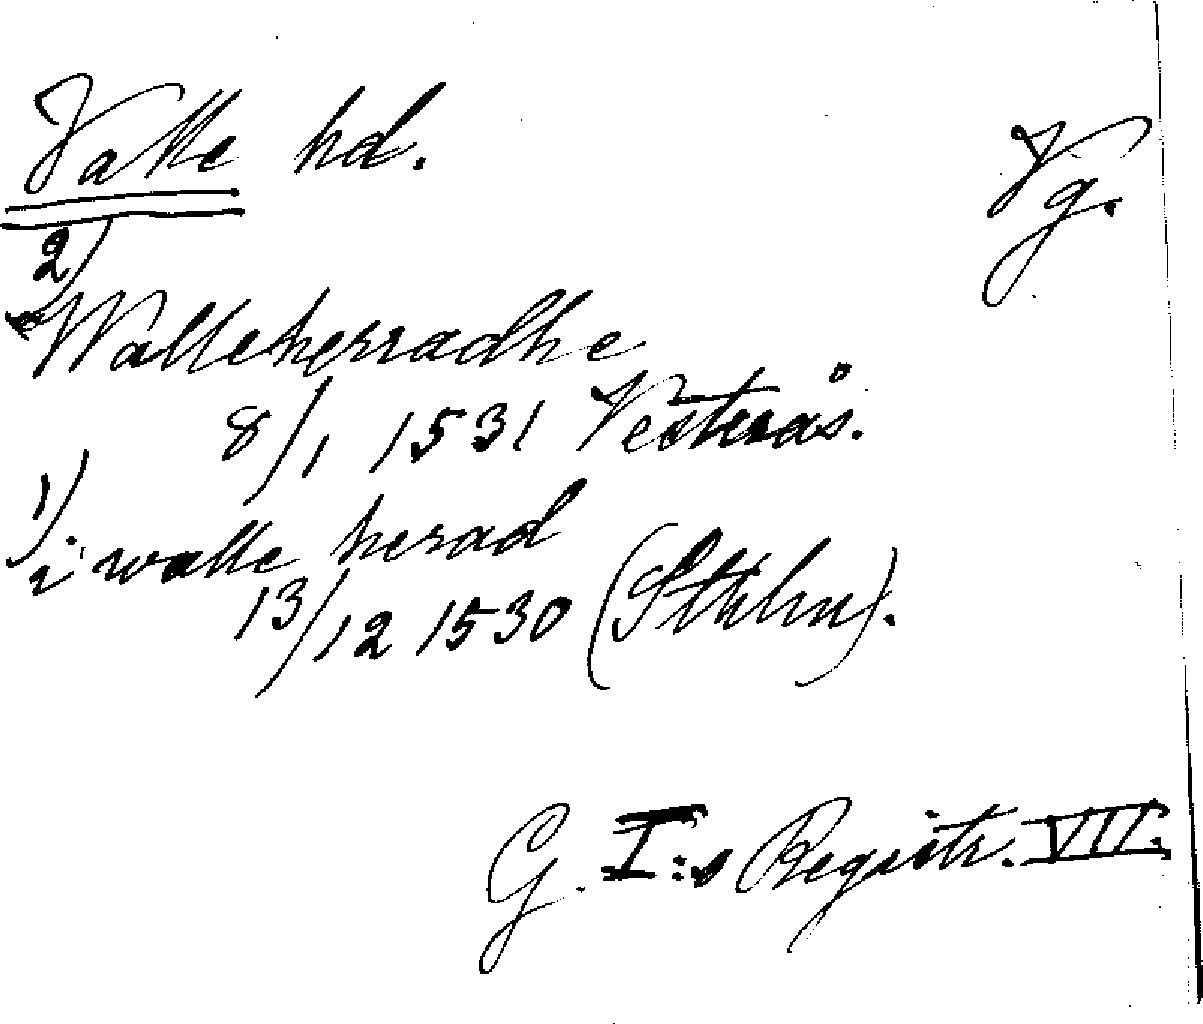 Valle hd.
Vg.
2)
Walleherradhe
8/1 1531 Vesterås.
1)
i walle herad
13/12 1530 (Sthlm).
G. I:s Registr. VII.